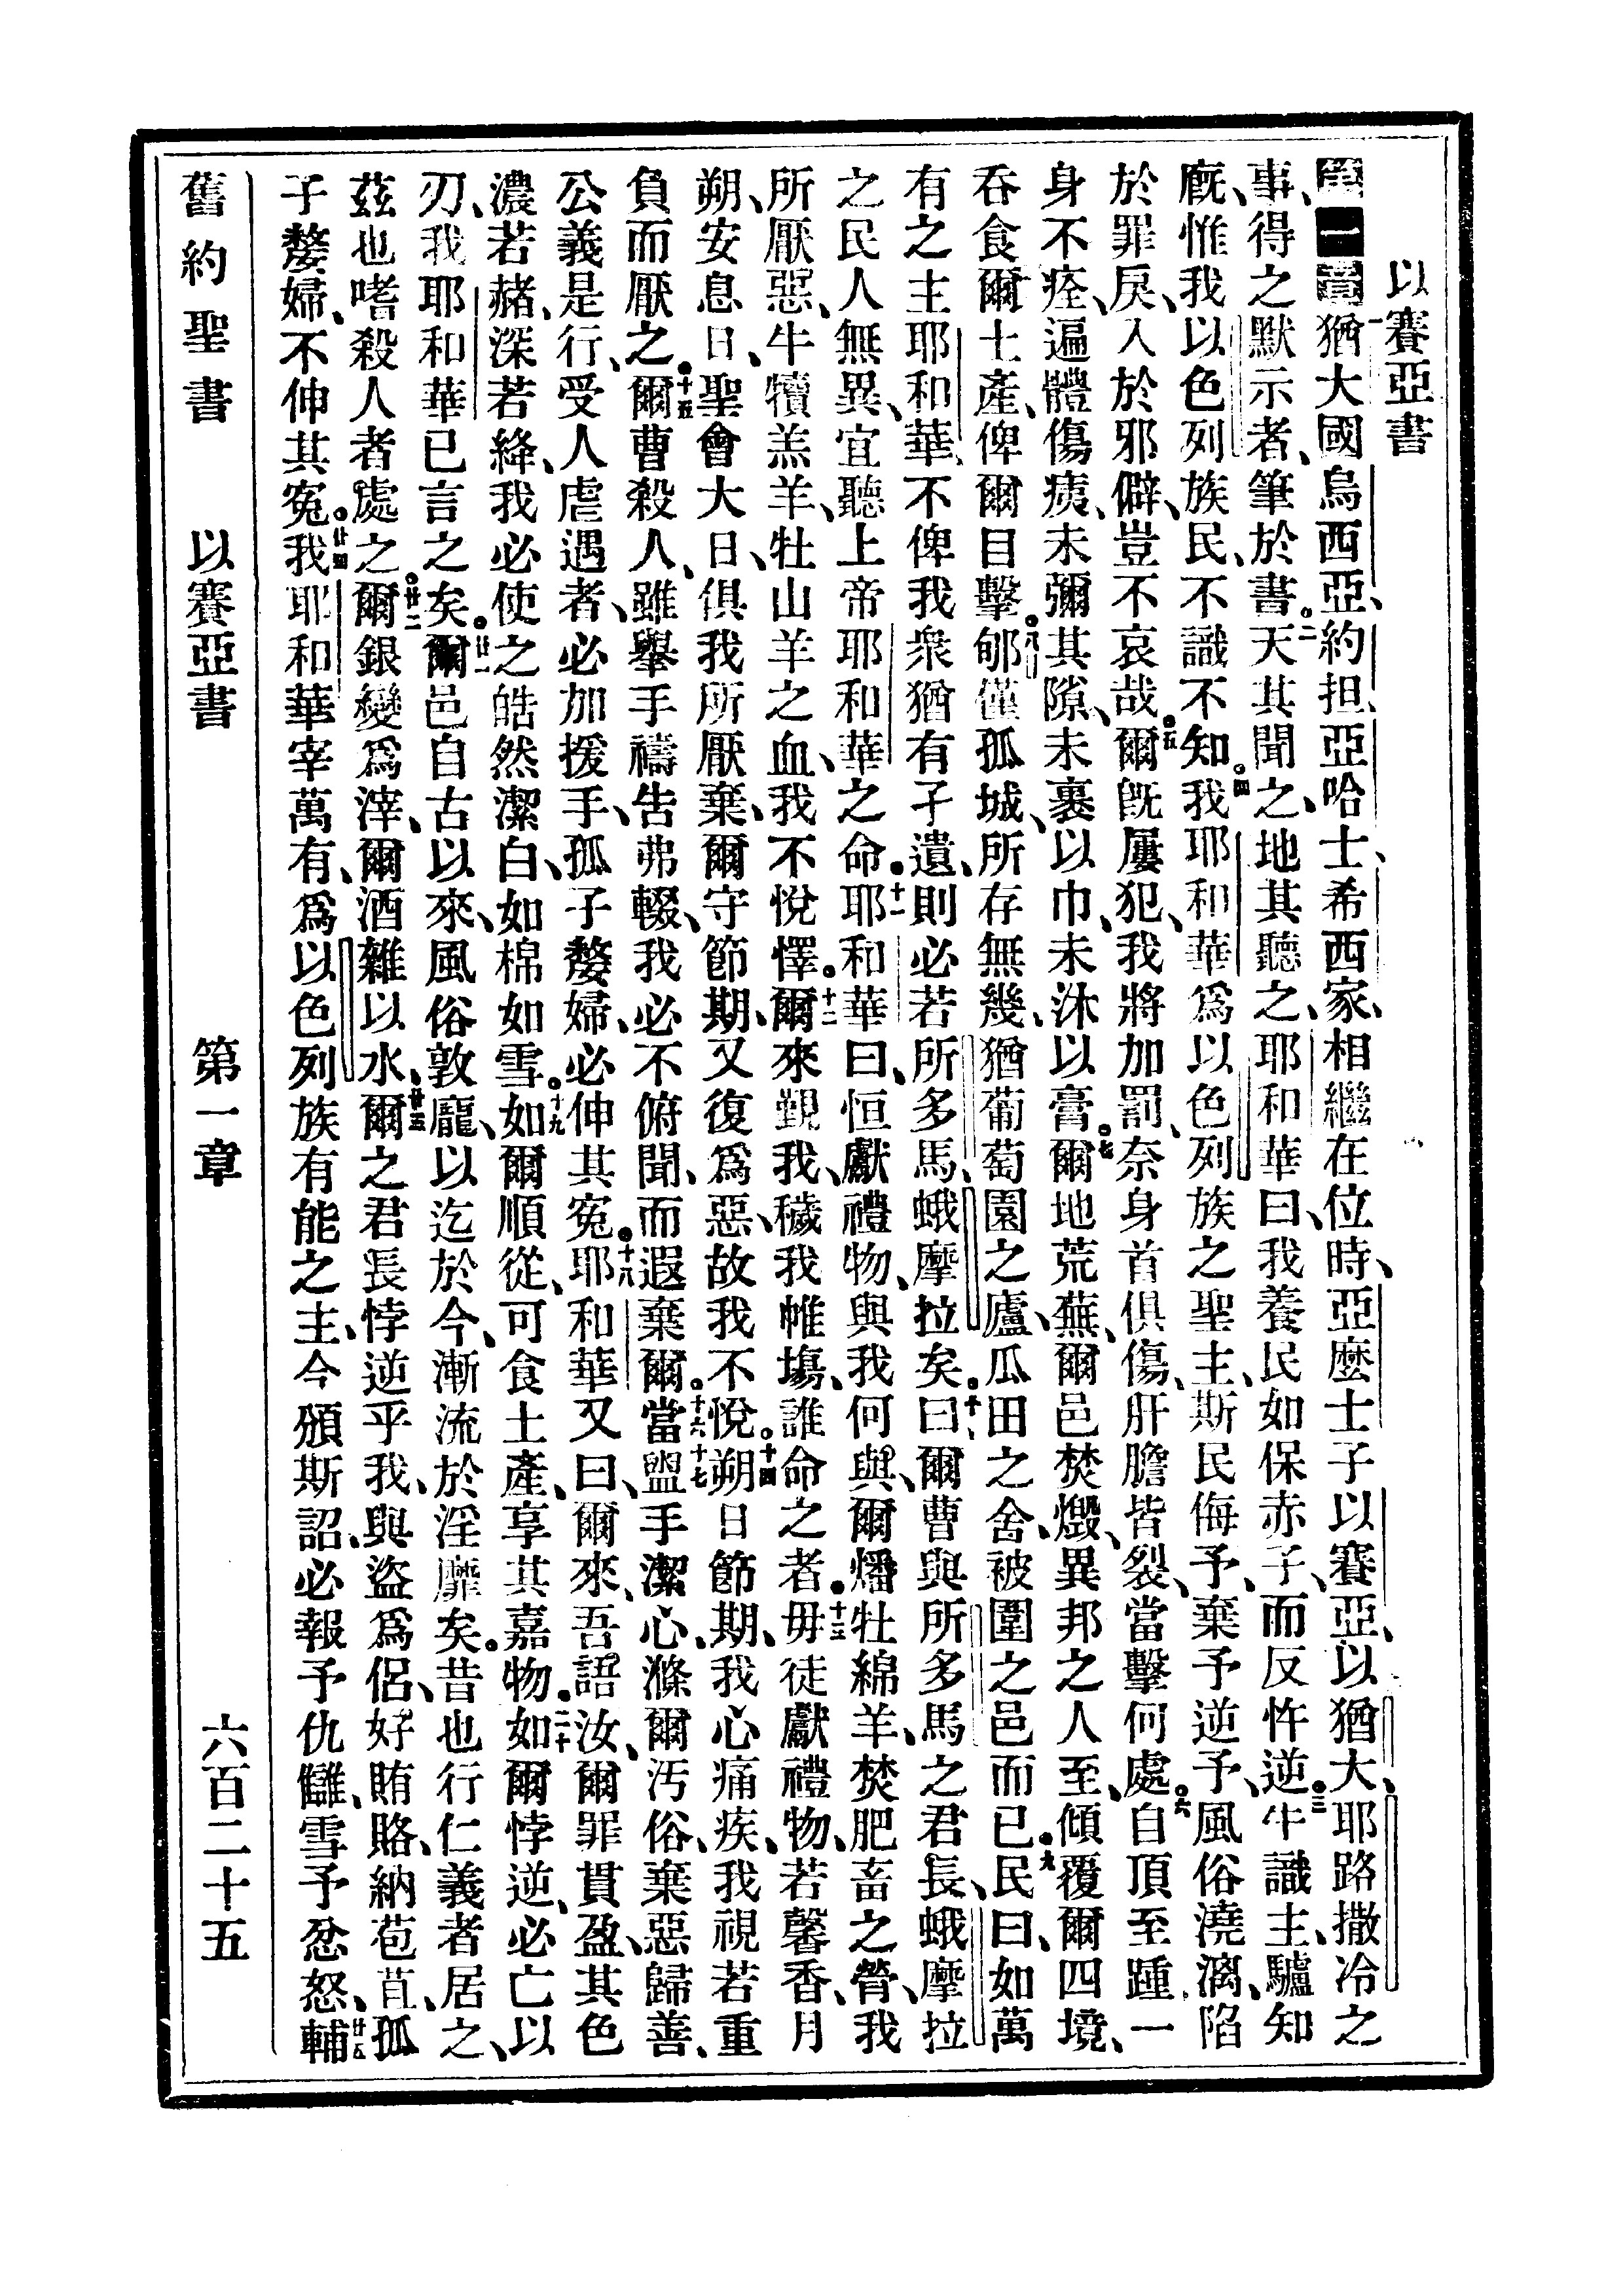 以賽亞書
第一章猶大國烏西亞、約担、亞哈士、希西家、相繼在位時、亞麽士子以賽亞、以猶大、耶路撒冷之
事、得之默示者、筆於書。二天其聞之、地其聽之、耶和華曰、我養民如保赤子、而反忤逆。三牛識主、驢知
廐、惟我以色列族民、不識不知。四我耶和華爲以色列族之聖主、斯民侮予、棄予逆予、風俗澆漓、陷
於罪戾、入於邪僻、豈不哀哉。五爾旣屢犯、我將加罰、奈身首俱傷、肝膽皆裂、當擊何處。六自頂至踵、一
身不痊、遍體傷痍、未彌其隙、未裹以巾、未沐以膏。七爾地荒蕪、爾邑焚燬、異邦之人至、傾覆爾四境、
呑食爾土產、俾爾目擊。八郇僅孤城、所存無幾、猶葡萄園之廬、瓜田之舍、被圍之邑而已。九民曰、如萬
有之主耶和華、不俾我衆猶有孑遺、則必若所多馬、蛾摩拉矣。十曰、爾曹與所多馬之君長、蛾摩拉
之民人無異、宜聽上帝耶和華之命。十一耶和華曰、恒獻禮物、與我何與、爾燔牡綿羊、焚肥畜之膋、我
所厭惡、牛犢羔羊、牡山羊之血、我不悅懌。十二爾來覲我、穢我帷塲、誰命之者。十三毋徒獻禮物、若馨香、月
朔、安息日、聖會大日、俱我所厭棄、爾守節期、又復爲惡、故我不悅。十四朔日節期、我心痛疾、我視若重
負而厭之。十五爾曹殺人、雖舉手禱告弗輟、我必不俯聞、而遐棄爾。十六十七當盥手潔心、滌爾汚俗、棄惡歸善、
公義是行、受人虐遇者、必加援手、孤子嫠婦、必伸其寃。十八耶和華又曰、爾來、吾語汝、爾罪貫盈、其色
濃若赭、深若絳、我必使之皓然潔白、如棉如雪。十九如爾順從、可食土產、享其嘉物。二十如爾悖逆、必亡以
刃、我耶和華已言之矣。廿一爾邑自古以來、風俗敦龐、以迄於今、漸流於淫靡矣。昔也行仁義者居之、
茲也嗜殺人者處之。廿二爾銀變爲滓、爾酒雜以水、廿三爾之君長悖逆乎我、與盜爲侶、好賄賂、納苞苴、孤
子嫠婦、不伸其寃。廿四我耶和華宰萬有、爲以色列族有能之主、今頒斯詔、必報予仇讎、雪予忿怒、廿五輔
舊約聖書 以賽亞書 第一章 六百二十五